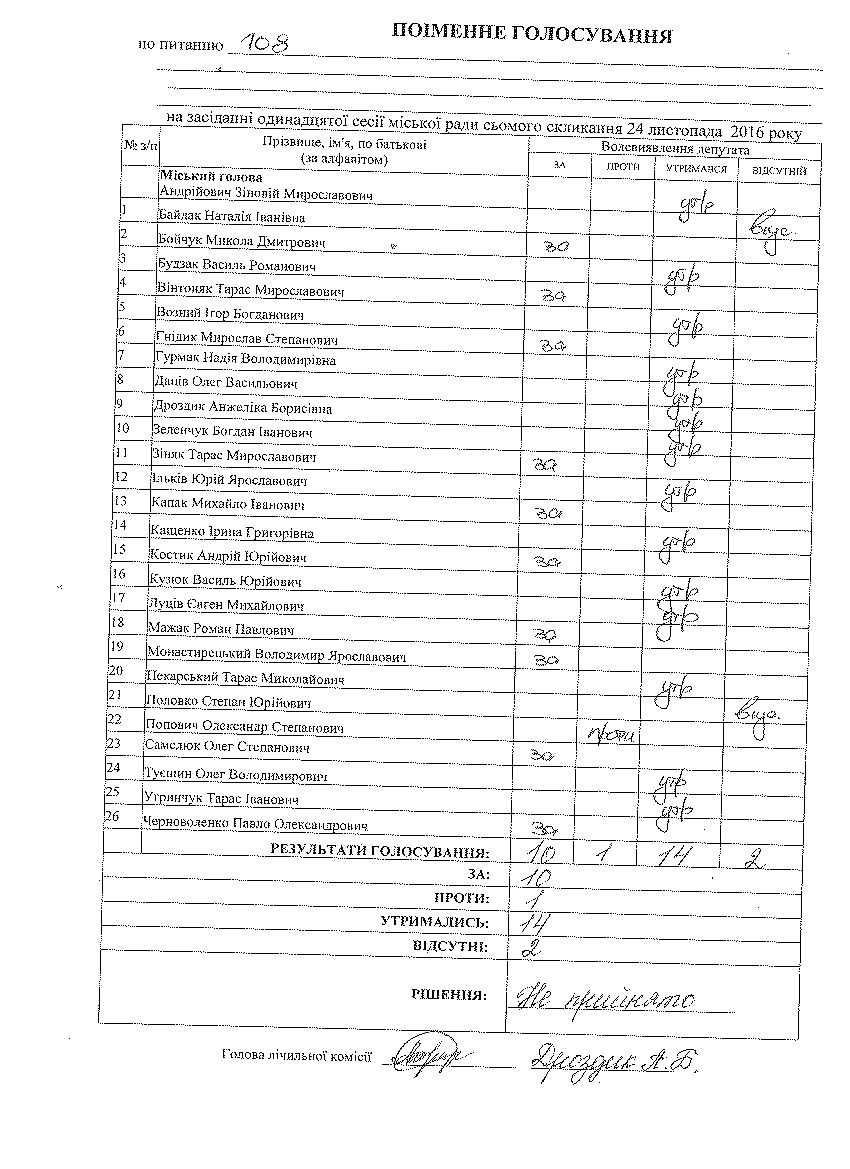 ПОІМЕННЕ ГОЛОСУВАННЯ
по питанню 108
на засіданні одинадцятої сесії міської ради сьомого скликання 24 листопада 2016 року
№ з/п Прізвище, ім'я, по батькові (за алфавітом) Волевиявлення депутата
ЗА ПРОТИ УТРИМАВСЯ ВІДСУТНІЙ
Міський голова
Андрійович Зіновій Мирославович утр
1 Байлак Наталія Іванівна відс.
2 Бойчук Микола Дмитрович за
3 Будзак Василь Романович утр
4 Вінтоняк Тарас Мирославович за
5 Возний Ігор Богданович утр
6 Гнідик Мирослав Степанович за
7 Гурмак Надія Володимирівна утр
8 Даців Олег Васильович утр
9 Дроздик Анжеліка Борисівна утр
10 Зеленчук Богдан Іванович утр
11 Зіняк Тарас Мирославович за
12 Ільків Юрій Ярославович утр
13 Капак Михайло Іванович за
14 Кащенко Ірина Григорівна утр
15 Костик Андрій Юрійович за
16 Кузюк Василь Юрійович утр
17 Луців Євген Михайлович утр
18 Мажак Роман Павлович за
19 Монастирецький Володимир Ярославович за
20 Пекарський Тарас Миколайович утр
21 Половко Степан Юрійович відс.
22 Попович Олександр Степанович проти
23 Самелюк Олег Степанович за
24 Туєшин Олег Володимирович утр
25 Угринчук Тарас Іванович утр
26 Черноволенко Павло Олександрович за
РЕЗУЛЬТАТИ ГОЛОСУВАННЯ: 10 1 14 2
ЗА: 10
ПРОТИ: 1
УТРИМАЛИСЬ: 14
ВІДСУТНІ: 2
РІШЕННЯ: Не прийнято
Голова лічильної комісії Дроздик А.Б.